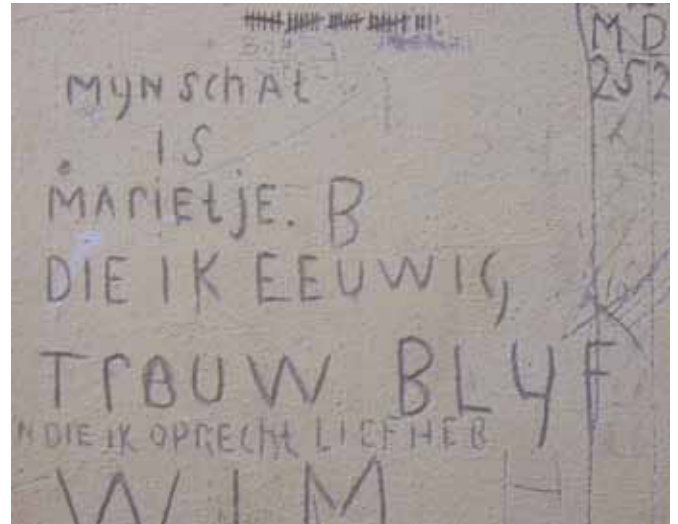 MD
252
MyN SchAt
IS
MArIEtjE. B
DIE IK EEUWIG
TrOUW BLYF
N DIE IK OPRECHt LIEFHEB
WIM H